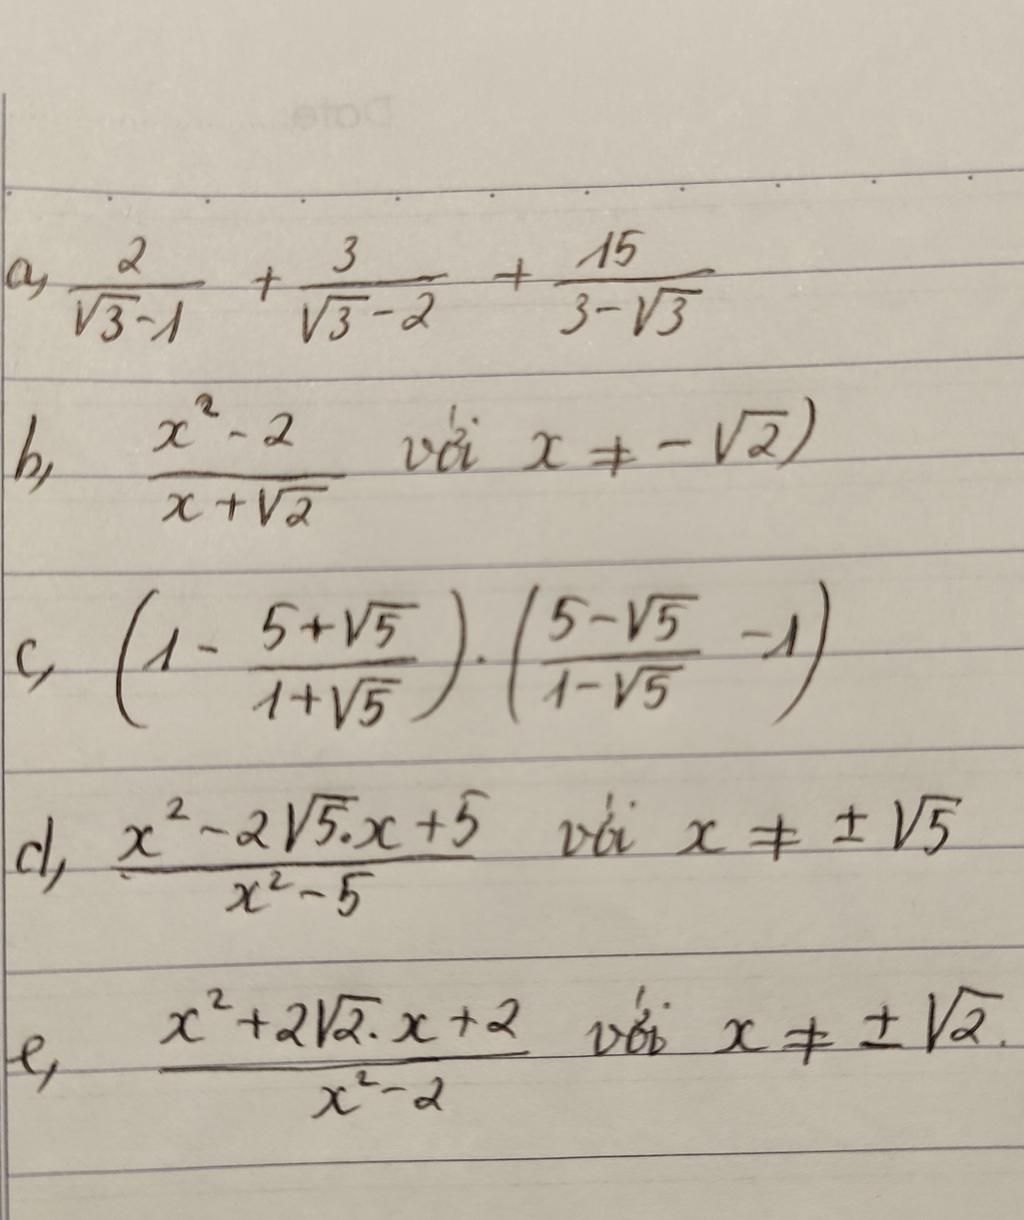 Date
a, 2/(√3-1) + 3/(√3-2) + 15/(3-√3)
b, (x²-2)/(x+√2) với x ≠ -√2)
c, (1 - (5+√5)/(1+√5)) . ((5-√5)/(1-√5) - 1)
d, (x²-2√5.x+5)/(x²-5) với x ≠ ±√5
e, (x²+2√2.x+2)/(x²-2) với x ≠ ±√2.